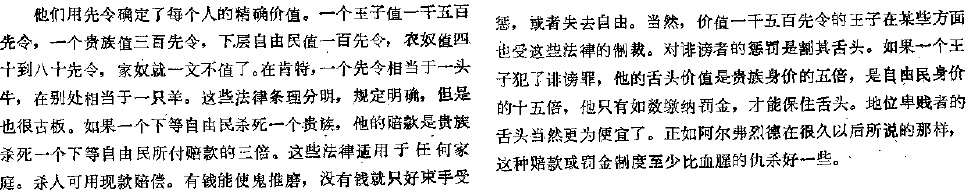 他们用先令确定了每个人的精确价值。一个王子值一千五百
先令，一个贵族值三百先令，下层自由民值一百先令，农奴值四
十到八十先令，家奴就一文不值了。在肯特，一个先令相当于一头
牛，在别处相当于一只羊。这些法律条理分明，规定明确，但是
也很古板。如果一个下等自由民杀死一个贵族，他的赔款是贵族
杀死一个下等自由民所付赔款的三倍。这些法律适用于任何家
庭。杀人可用现款赔偿。有钱能使鬼推磨，没有钱就只好束手受
惩，或者失去自由。当然，价值一千五百先令的王子在某些方面
也受这些法律的制裁。对诽谤者的惩罚是割其舌头。如果一个王
子犯了诽谤罪，他的舌头价值是贵族身价的五倍，是自由民身价
的十五倍，他只有如数缴纳罚金，才能保住舌头。地位卑贱者的
舌头当然更为便宜了。正如阿尔弗烈德在很久以后所说的那样，
这种赔款或罚金制度至少比血腥的仇杀好一些。